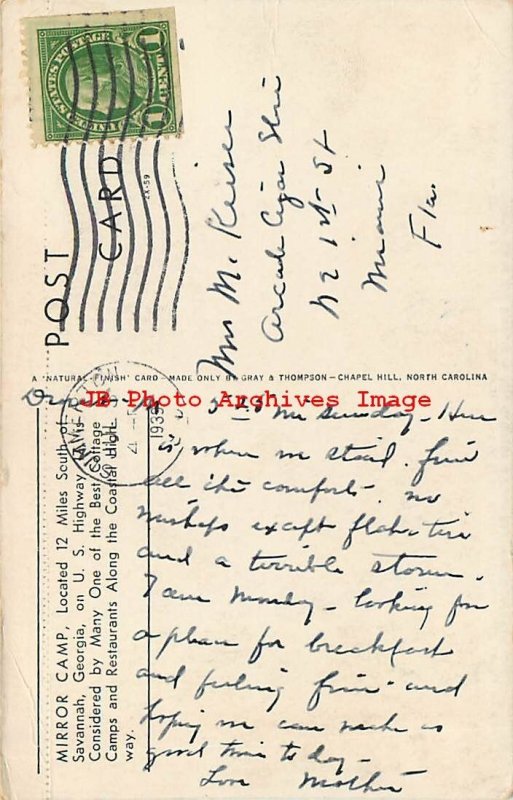 POST CARD
ZX-59
UNITED STATES POSTAGE
1939
Mrs M. Keiser
Arcade Cigar Store
N E 1st St
Miami
Fla.
A "NATURAL-FINISH" CARD - MADE ONLY BY GRAY & THOMPSON - CHAPEL HILL, NORTH CAROLINA
JB Photo Archives Image
MIRROR CAMP, Located 12 Miles South of
Savannah, Georgia, on U. S. Highway 17, is
Considered by Many One of the Best Cottage
Camps and Restaurants Along the Coastal High-
way.
Sunday - Here
is where we staid. fine
all the comforts. no
mishaps except flat-tire
and a terrible storm.
7 am Monday - looking for
a place for breakfast
and feeling fine and
hoping we can make as
good time to day -
Love Mother